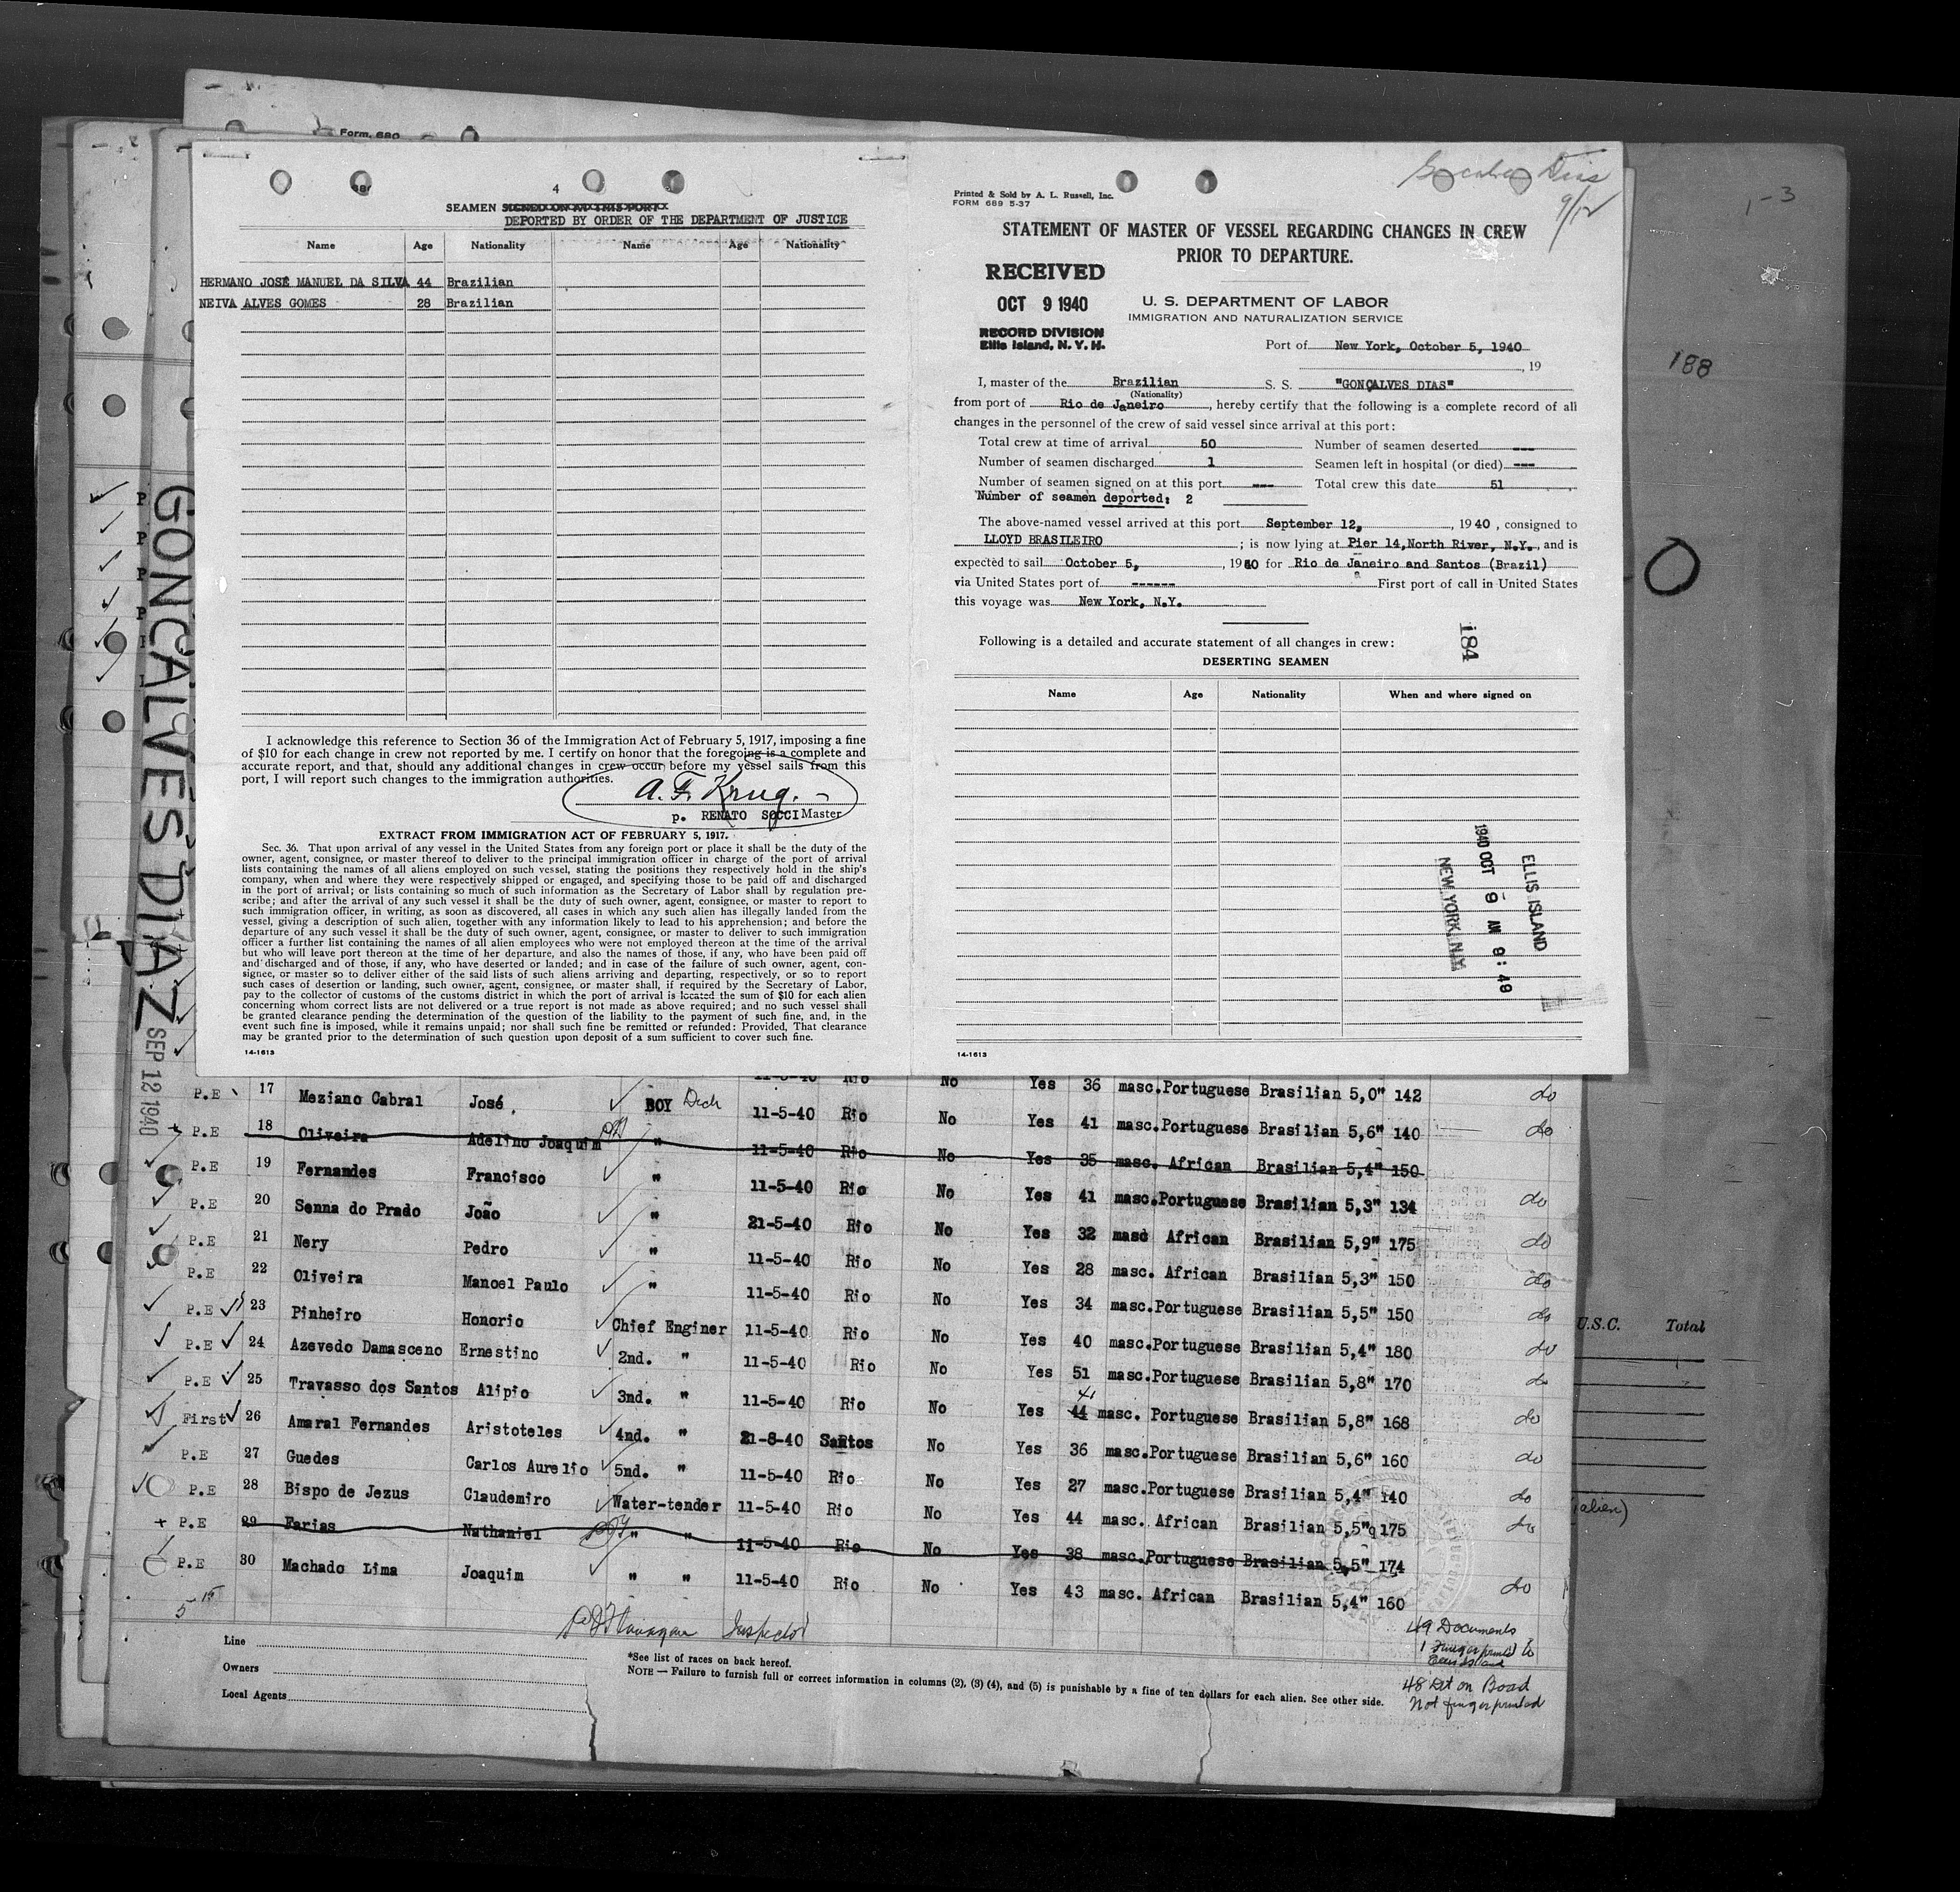 Form. 680
4
SEAMEN SIGNED ON AT THIS PORT
DEPORTED BY ORDER OF THE DEPARTMENT OF JUSTICE
Name Age Nationality Name Age Nationality
HERMANO JOSÉ MANUEL DA SILVA 44 Brazilian
NEIVA ALVES GOMES 28 Brazilian
I acknowledge this reference to Section 36 of the Immigration Act of February 5, 1917, imposing a fine
of $10 for each change in crew not reported by me. I certify on honor that the foregoing is a complete and
accurate report, and that, should any additional changes in crew occur before my vessel sails from this
port, I will report such changes to the immigration authorities.
A. F. Krug.
p. RENATO SOCCI Master
EXTRACT FROM IMMIGRATION ACT OF FEBRUARY 5, 1917.
Sec. 36. That upon arrival of any vessel in the United States from any foreign port or place it shall be the duty of the
owner, agent, consignee, or master thereof to deliver to the principal immigration officer in charge of the port of arrival
lists containing the names of all aliens employed on such vessel, stating the positions they respectively hold in the ship's
company, when and where they were respectively shipped or engaged, and specifying those to be paid off and discharged
in the port of arrival; or lists containing so much of such information as the Secretary of Labor shall by regulation pre-
scribe; and after the arrival of any such vessel it shall be the duty of such owner, agent, consignee, or master to report to
such immigration officer, in writing, as soon as discovered, all cases in which any such alien has illegally landed from the
vessel, giving a description of such alien, together with any information likely to lead to his apprehension; and before the
departure of any such vessel it shall be the duty of such owner, agent, consignee, or master to deliver to such immigration
officer a further list containing the names of all alien employees who were not employed thereon at the time of the arrival
but who will leave port thereon at the time of her departure, and also the names of those, if any, who have been paid off
and discharged and of those, if any, who have deserted or landed; and in case of the failure of such owner, agent, con-
signee, or master so to deliver either of the said lists of such aliens arriving and departing, respectively, or so to report
such cases of desertion or landing, such owner, agent, consignee, or master shall, if required by the Secretary of Labor,
pay to the collector of customs of the customs district in which the port of arrival is located the sum of $10 for each alien
concerning whom correct lists are not delivered or a true report is not made as above required; and no such vessel shall
be granted clearance pending the determination of the question of the liability to the payment of such fine, and, in the
event such fine is imposed, while it remains unpaid; nor shall such fine be remitted or refunded: Provided, That clearance
may be granted prior to the determination of such question upon deposit of a sum sufficient to cover such fine.
14-1613
Dias
9/12
Printed & Sold by A. L. Russell, Inc.
FORM 689 5-37
STATEMENT OF MASTER OF VESSEL REGARDING CHANGES IN CREW
PRIOR TO DEPARTURE.
RECEIVED
OCT 9 1940
RECORD DIVISION
Ellis Island, N. Y. H.
U. S. DEPARTMENT OF LABOR
IMMIGRATION AND NATURALIZATION SERVICE
Port of New York, October 5, 1940
, 19
I, master of the Brazilian S. S. "GONÇALVES DIAS"
(Nationality)
from port of Rio de Janeiro, hereby certify that the following is a complete record of all
changes in the personnel of the crew of said vessel since arrival at this port:
Total crew at time of arrival 50 Number of seamen deserted ---
Number of seamen discharged 1 Seamen left in hospital (or died) ---
Number of seamen signed on at this port --- Total crew this date 51
Number of seamen deported: 2
The above-named vessel arrived at this port September 12, , 1940, consigned to
LLOYD BRASILEIRO ; is now lying at Pier 14, North River, N.Y., and is
expected to sail October 5, , 1940 for Rio de Janeiro and Santos (Brazil)
via United States port of ------ First port of call in United States
this voyage was New York, N.Y.
Following is a detailed and accurate statement of all changes in crew:
184
DESERTING SEAMEN
Name Age Nationality When and where signed on
ELLIS ISLAND
1940 OCT 9 AM 9:49
NEW YORK N.Y.
14-1613
1-3
188
0
GONCALVES DIAZ
SEP 12 1940
11-5-40 Rio No Yes 36 masc. Portuguese Brasilian 5,0" 142 do
P.E 17 Meziano Cabral José BOY Deck 11-5-40 Rio No Yes 41 masc. Portuguese Brasilian 5,6" 140 do
P.E 18 Oliveira Adelino Joaquim " 11-5-40 Rio No Yes 35 masc. African Brasilian 5,4" 150
P.E 19 Fernandes Francisco " 11-5-40 Rio No Yes 41 masc. Portuguese Brasilian 5,3" 134 do
P.E 20 Senna do Prado João " 21-5-40 Rio No Yes 32 masc African Brasilian 5,9" 175 do
P.E 21 Nery Pedro " 11-5-40 Rio No Yes 28 masc. African Brasilian 5,3" 150 do
P.E 22 Oliveira Manoel Paulo " 11-5-40 Rio No Yes 34 masc. Portuguese Brasilian 5,5" 150 do
P.E 23 Pinheiro Honorio Chief Enginer 11-5-40 Rio No Yes 40 masc. Portuguese Brasilian 5,4" 180 do
P.E 24 Azevedo Damasceno Ernestino 2nd. " 11-5-40 Rio No Yes 51 masc. Portuguese Brasilian 5,8" 170 do
P.E 25 Travasso dos Santos Alipio 3nd. " 11-5-40 Rio No Yes 44 41 masc. Portuguese Brasilian 5,8" 168 do
First 26 Amaral Fernandes Aristoteles 4nd. " 21-8-40 Santos No Yes 36 masc. Portuguese Brasilian 5,6" 160 do
P.E 27 Guedes Carlos Aurelio 5nd. " 11-5-40 Rio No Yes 27 masc. Portuguese Brasilian 5,4" 140 do
P.E 28 Bispo de Jezus Claudemiro Water-tender 11-5-40 Rio No Yes 44 masc. African Brasilian 5,5" 175 do
P.E 29 Farias Nathaniel " " 11-5-40 Rio No Yes 38 masc. Portuguese Brasilian 5,5" 174
P.E 30 Machado Lima Joaquim " " 11-5-40 Rio No Yes 43 masc. African Brasilian 5,4" 160 do
U.S.C. Total
(alien)
Flanagan Inspector
Line
Owners
Local Agents
*See list of races on back hereof.
NOTE — Failure to furnish full or correct information in columns (2), (3) (4), and (5) is punishable by a fine of ten dollars for each alien. See other side.
49 Documents
1 Fingerprinted to
Ellis Island
48 Det on Board
Not fingerprinted